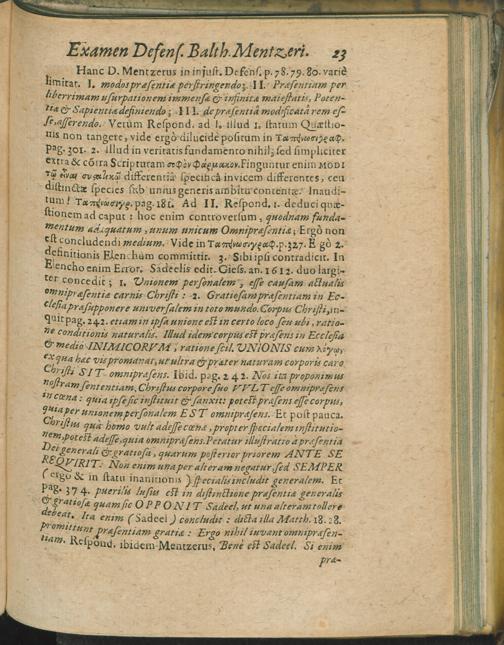 Examen Defens. Balth. Mentzeri. 23
Hanc D. Mentzerus in injust. Defens. p. 78. 79. 80. variè
limitat. I. modos præsentiæ perstringendo; II. Præsentiam per
liberrimam usurpationem immensæ & infinitæ maiestatis, Poten-
tiæ & Sapientiæ definiendo; III. de præsentiâ modificatâ rem es-
se asserendo. Verùm Respond. ad I. illud 1. statum Quæstio-
nis non tangere, vide ergò dilucidè positum in Ταπεινωσιγραφ.
pag. 301. 2. Illud in veritatis fundamento nihil; sed simpliciter
extra & cōtra Scripturam σοφὸν φάρμακον. Finguntur enim MODI
τῶ εἶναι differentiâ specificâ invicem differentes, ceu
distinctæ species sub unius generis ambitu contentæ. Inaudi-
tum! Ταπεινωσιγρ. pag. 181. Ad II. Respond. 1. deduci quæ-
stionem ad caput: hoc enim controversum, quodnam funda-
mentum adæquatum, unum unicum Omnipræsentiæ; Ergò non
est concludendi medium. Vide in Ταπεινωσιγραφ. p. 327. E gò 2.
definitionis Elenchum committit. 3. Sibi ipsi contradicit. In
Elencho enim Error. Sadeelis edit. Giess. an. 1612. duo largi-
ter concedit; 1. Unionem personalem, esse causam actualis
omnipræsentiæ carnis Christi: 2. Gratiosam præsentiam in Ec-
clesia præsupponere universalem in toto mundo. Corpus Christi, in-
quit pag. 242. etiam in ipsa unione est in certo loco seu ubi, ratio-
ne conditionis naturalis. Illud idem corpus est præsens in Ecclesia
& medio INIMICORVM, ratione scil. UNIONIS cum λόγῳ,
ex qua hac vis promanat, ut ultra & præter naturam corporis caro
Christi SIT omnipræsens. Ibid. pag. 242. Nos ita proponimus
nostram sententiam. Christus corpore suo VVLT esse omnipræsens
in cœna: quia ipse sic instituit & sanxit: potest præsens esse corpus,
quia per unionem personalem EST omnipræsens. Et post pauca.
Christus quà homo vult adesse cœnæ, propter specialem institutio-
nem, potest adesse, quia omnipræsens. Petatur illustratio à præsentia
Dei generali & gratiosa, quarum posterior priorem ANTE SE
REQVIRIT. Non enim una per alteram negatur, sed SEMPER
(ergò & in statu inanitionis) specialis includit generalem. Et
pag. 374. puerilis lusus est in distinctione præsentiæ generalis
& gratiosæ quam sic OPPONIT Sadeel, ut una alteram tollere
debeat. Ita enim (Sadeel) concludit: dicta illa Matth. 18. 28.
promittunt præsentiam gratiæ: Ergo nihil iuvant omnipræsen-
tiam. Respond. ibidem Mentzerus, Benè est Sadeel. Si enim
præ-